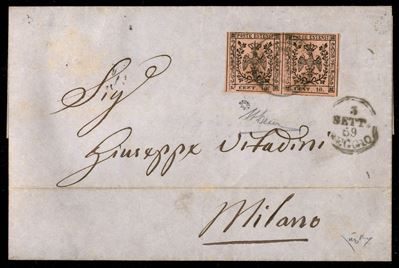 POSTE ESTENSI POSTE ESTENSI
CENT. 10. CENT. 10.
3
SETT.
59
REGGIO
Sig
Giuseppe Vitadini
Milano